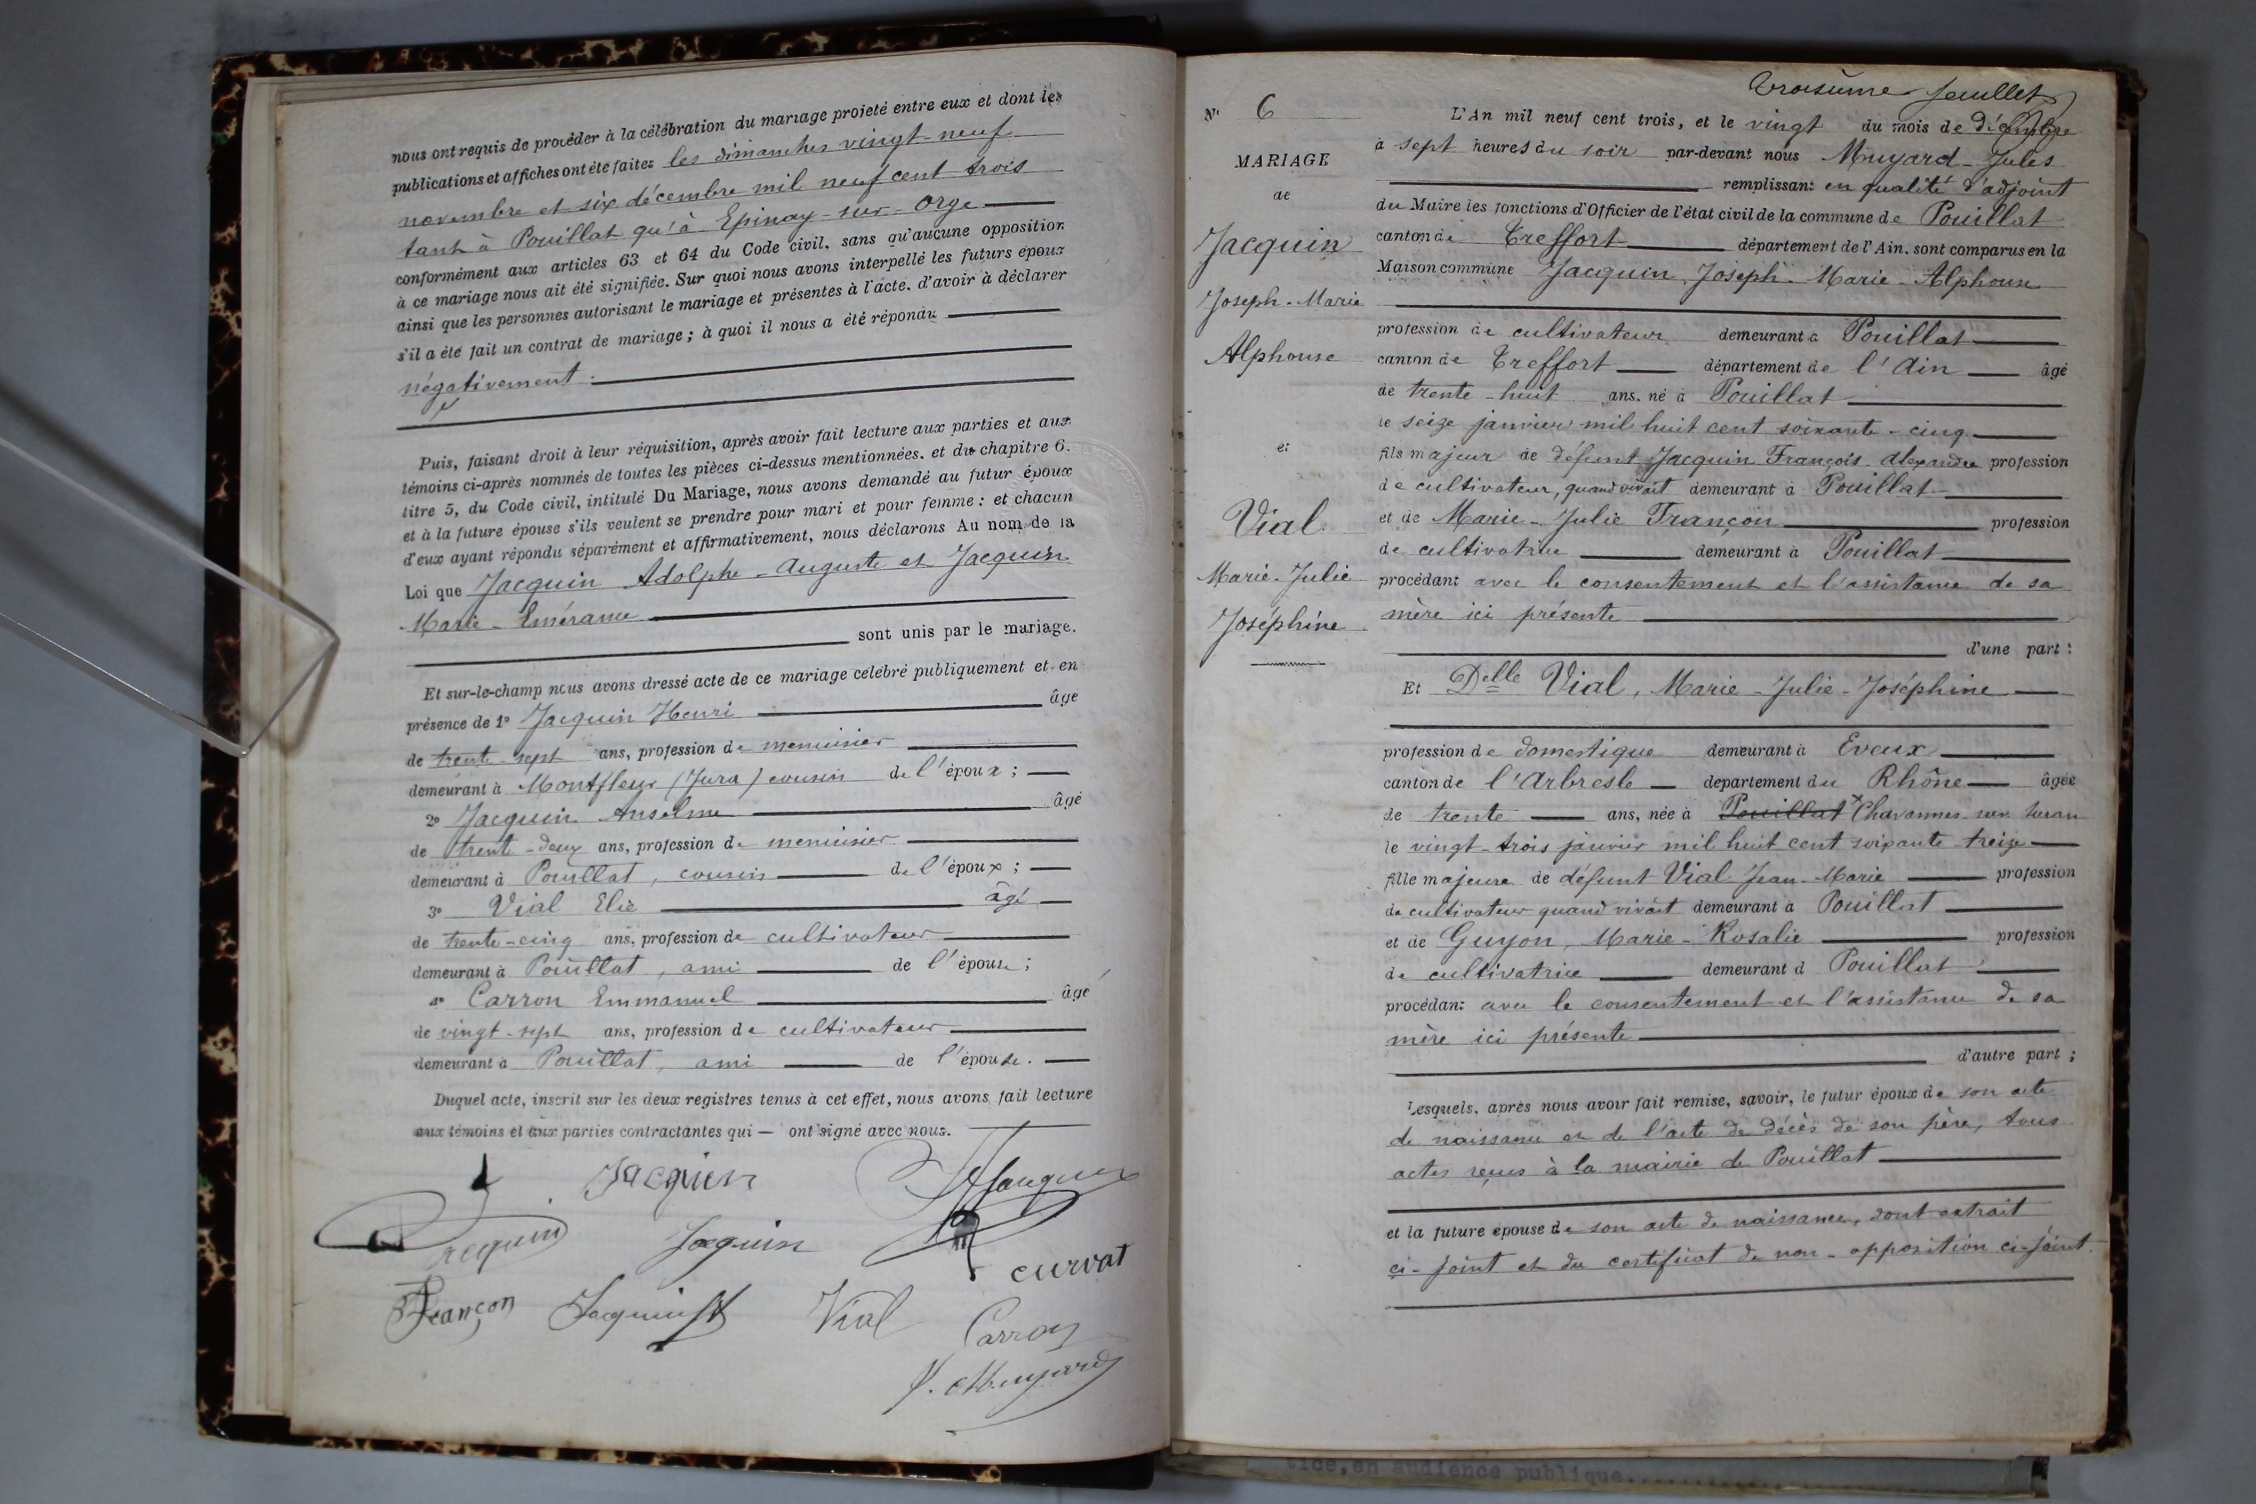 nous ont requis de procéder à la célébration du mariage projeté entre eux et dont les
publications et affiches ont été faites les dimanches vingt-neuf
novembre et six décembre mil neuf cent trois
tant à Pouillat qu'à Epinay-sur-Orge
conformément aux articles 63 et 64 du Code civil, sans qu'aucune opposition
à ce mariage nous ait été signifiée. Sur quoi nous avons interpellé les futurs époux
ainsi que les personnes autorisant le mariage et présentes à l'acte, d'avoir à déclarer
s'il a été fait un contrat de mariage ; à quoi il nous a été répondu
négativement.
Puis, faisant droit à leur réquisition, après avoir fait lecture aux parties et aux
témoins ci-après nommés de toutes les pièces ci-dessus mentionnées, et du chapitre 6,
titre 5, du Code civil, intitulé Du Mariage, nous avons demandé au futur époux
et à la future épouse s'ils veulent se prendre pour mari et pour femme : et chacun
d'eux ayant répondu séparément et affirmativement, nous déclarons Au nom de la
Loi que Jacquin Adolphe-Auguste et Jacquin
Marie-Emérance
sont unis par le mariage.
Et sur-le-champ nous avons dressé acte de ce mariage célébré publiquement et en
présence de 1° Jacquin Henri âgé
de trente-sept ans, profession de menuisier
demeurant à Montfleur (Jura) cousin de l'époux ;
2° Jacquin Anselme âgé
de trente-deux ans, profession de menuisier
demeurant à Pouillat, cousin de l'époux ;
3° Vial Elie âgé
de trente-cinq ans, profession de cultivateur
demeurant à Pouillat, ami de l'épouse ;
4° Carron Emmanuel âgé
de vingt-sept ans, profession de cultivateur
demeurant à Pouillat, ami de l'épouse.
Duquel acte, inscrit sur les deux registres tenus à cet effet, nous avons fait lecture
aux témoins et aux parties contractantes qui — ont signé avec nous.
Jacquin Jacquin
Jacquin Jacquin curvat
Françon Jacquin Vial Carron
J. Muyard
Troisième feuillet
N° 6
MARIAGE
de
Jacquin
Joseph-Marie
Alphonse
et
Vial
Marie-Julie
Joséphine
L'An mil neuf cent trois, et le vingt du mois de décembre
à sept heures du soir par-devant nous Muyard Jules
remplissant en qualité d'adjoint
du Maire les fonctions d'Officier de l'état civil de la commune de Pouillat
canton de Treffort département de l'Ain, sont comparus en la
Maison commune Jacquin, Joseph-Marie-Alphonse
profession de cultivateur demeurant à Pouillat
canton de Treffort département de l'Ain âgé
de trente-huit ans, né à Pouillat
le seize janvier mil huit cent soixante-cinq
fils majeur de défunt Jacquin François Alexandre profession
de cultivateur, quand vivait demeurant à Pouillat
et de Marie-Julie Françon profession
de cultivatrice demeurant à Pouillat
procédant avec le consentement et l'assistance de sa
mère ici présente
d'une part :
Et Delle Vial, Marie-Julie-Joséphine
profession de domestique demeurant à Eveux
canton de l'Arbresle département du Rhône âgée
de trente ans, née à Pouillat × Chavannes-sur-Suran
le vingt-trois janvier mil huit cent soixante-treize
fille majeure de défunt Vial Jean-Marie profession
de cultivateur quand vivait demeurant à Pouillat
et de Guyon, Marie-Rosalie profession
de cultivatrice demeurant à Pouillat
procédant avec le consentement et l'assistance de sa
mère ici présente
d'autre part ;
Lesquels, après nous avoir fait remise, savoir, le futur époux de son acte
de naissance et de l'acte de décès de son père, tous
actes reçus à la mairie de Pouillat
et la future épouse de son acte de naissance, dont extrait
ci-joint et du certificat de non-opposition ci-joint.
tice, en audience publique